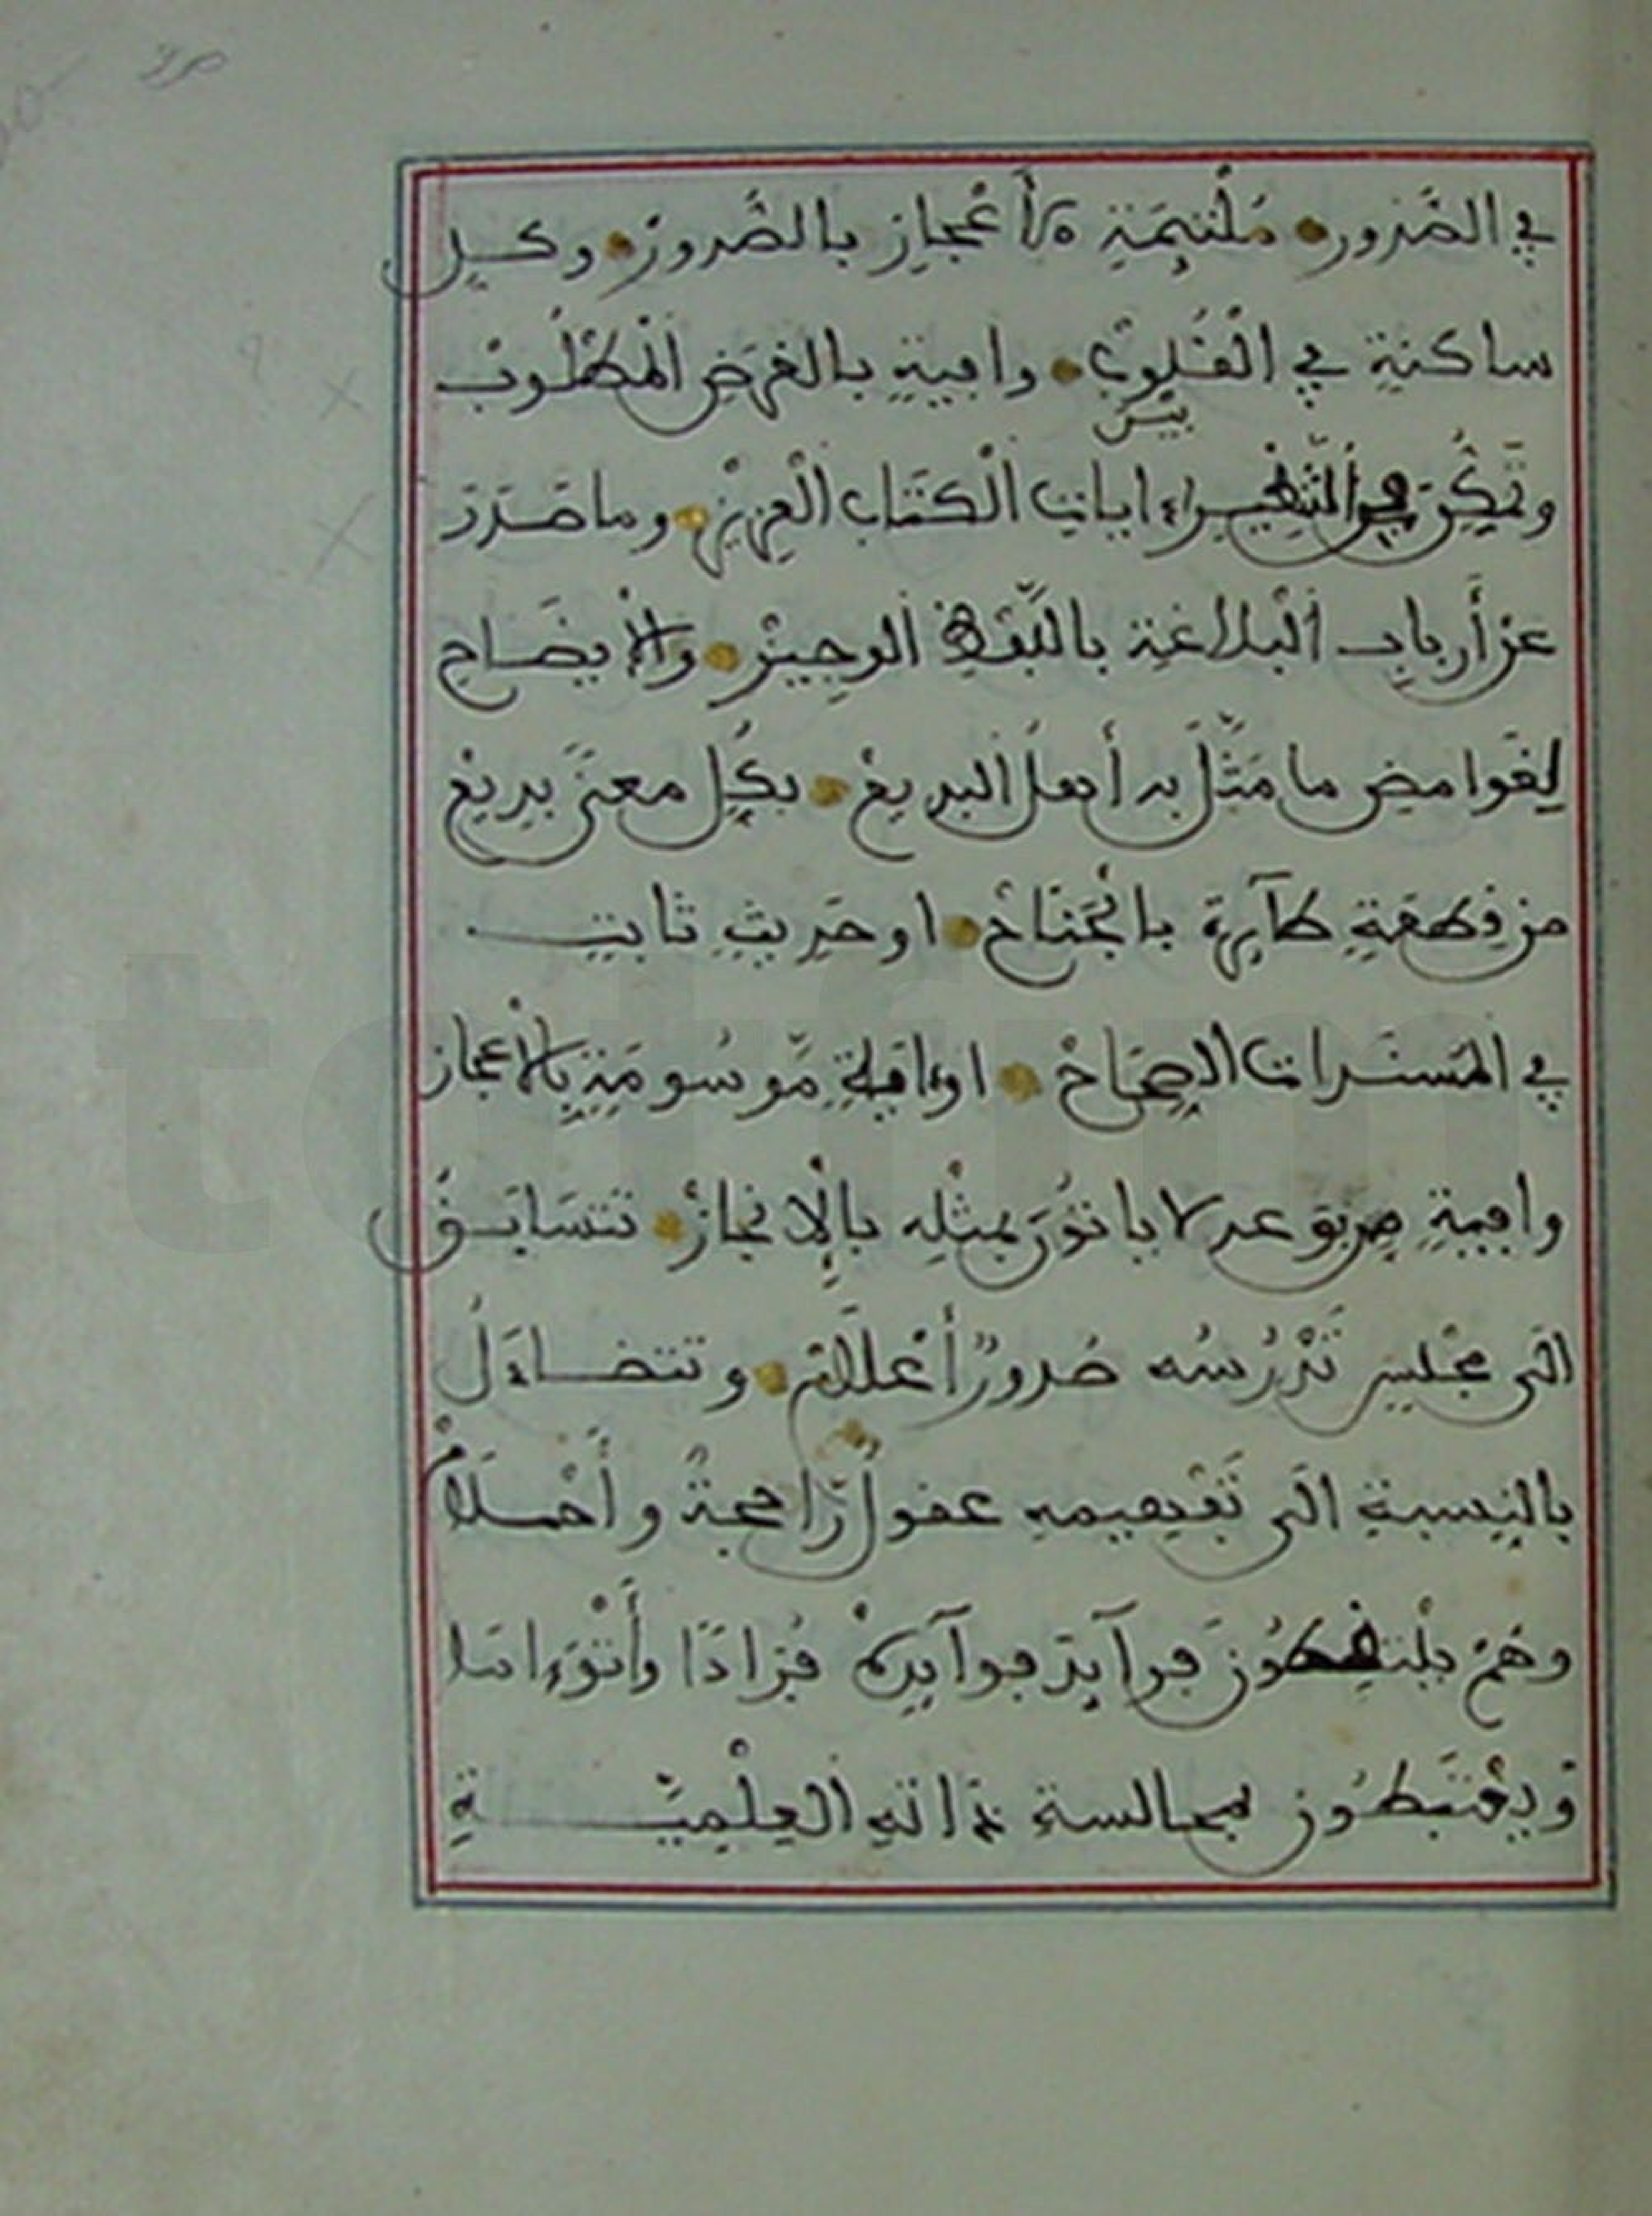 في الصدور ملتئمة الأعجاز بالصدور وكل
ساكنة في القلوب وافية بالغرض المطلوب
بين
وتمكن التنظير ءايات الكتاب العزيز وما صدر
عن أرباب البلاغة باللفظ الوجيز والإيضاح
لغوامض ما مثل به أهل البديع بكل معنى بديع
من قطعة طآيرة بالجناح او حديث ثابت
في المسندات الصحاح او ءاية موسومة بالاعجاز
وافية لا ياتون بمثله بالإنجاز تتسابق
الى مجلس تدرسه صدور أعلام وتتضاءل
بالنسبة الى تفهيمه عقول راجحة وأحلام
وهم يلتقطون فرآيد فوآيده فرادا وأتوءاما
ويغتبطون بمجالسة ذاته العلمية